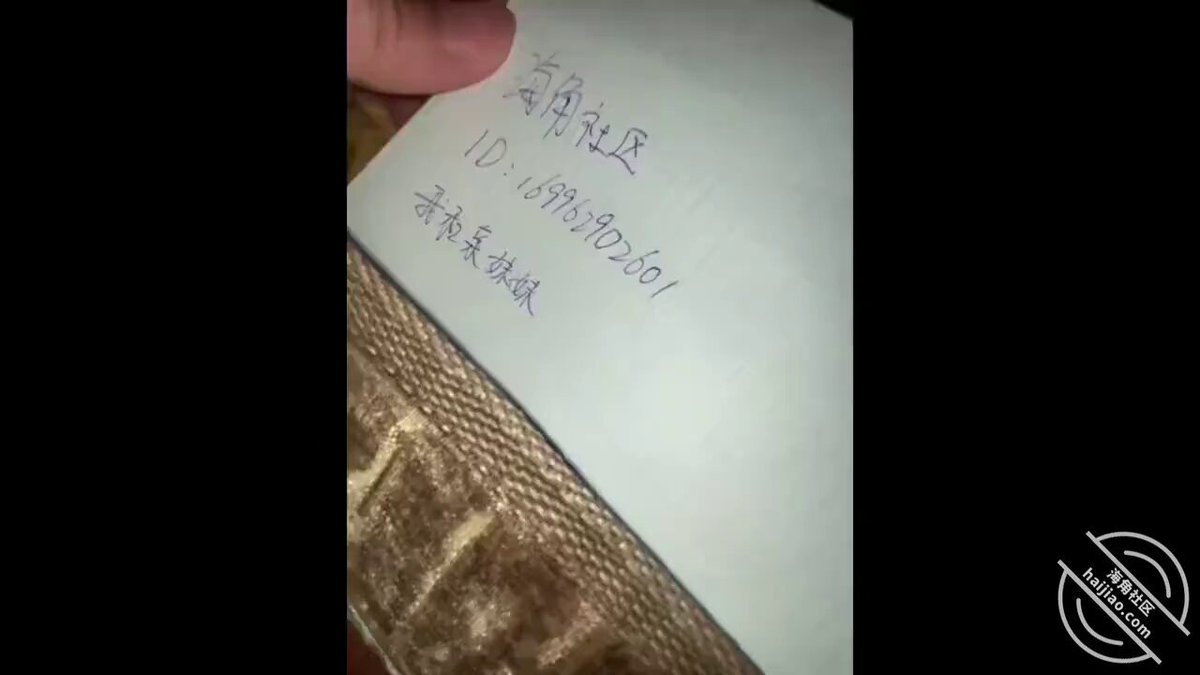 海角社区
ID: 169962902601
我和亲妹妹
海角社区
haijiao.com